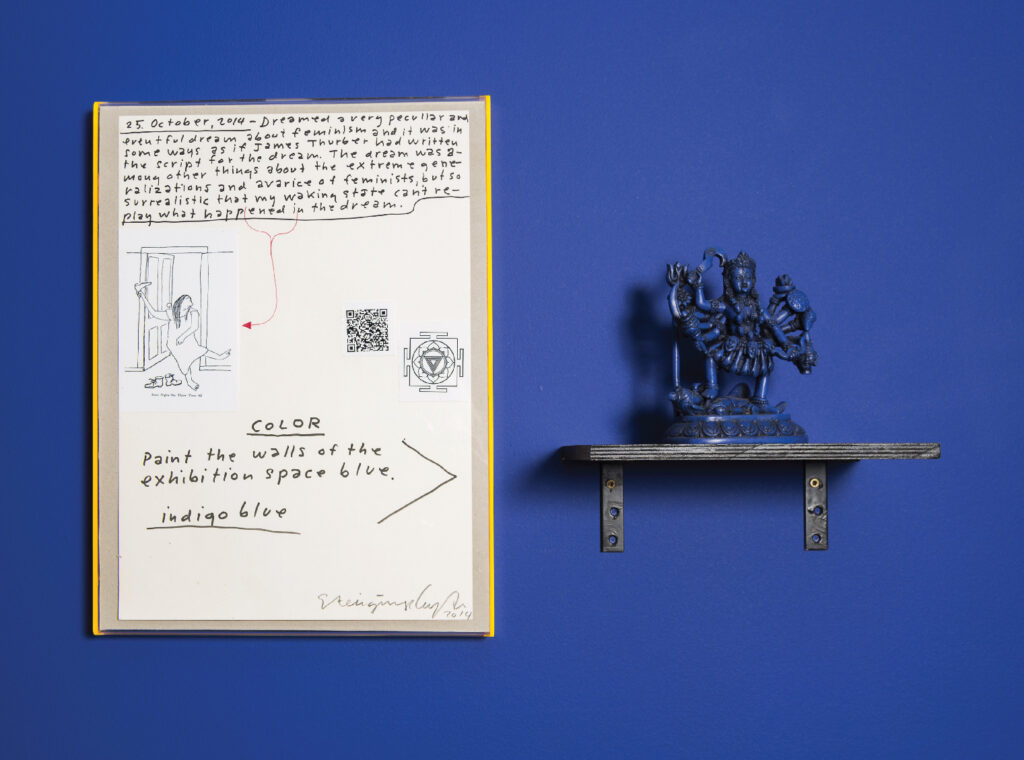 25. October, 2014 – Dreamed a very peculiar and
eventful dream about feminism and it was in
some ways as if James Thurber had written
the script for the dream. The dream was a-
mong other things about the extreme gene-
ralizations and avarice of feminists, but so
surrealistic that my waking state can't re-
play what happened in the dream.
COLOR
Paint the walls of the
exhibition space blue.
indigo blue
2014